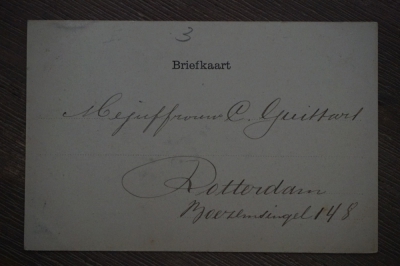 3
Briefkaart
Mejuffrouw C. Guittart
Rotterdam
Boezemsingel 148